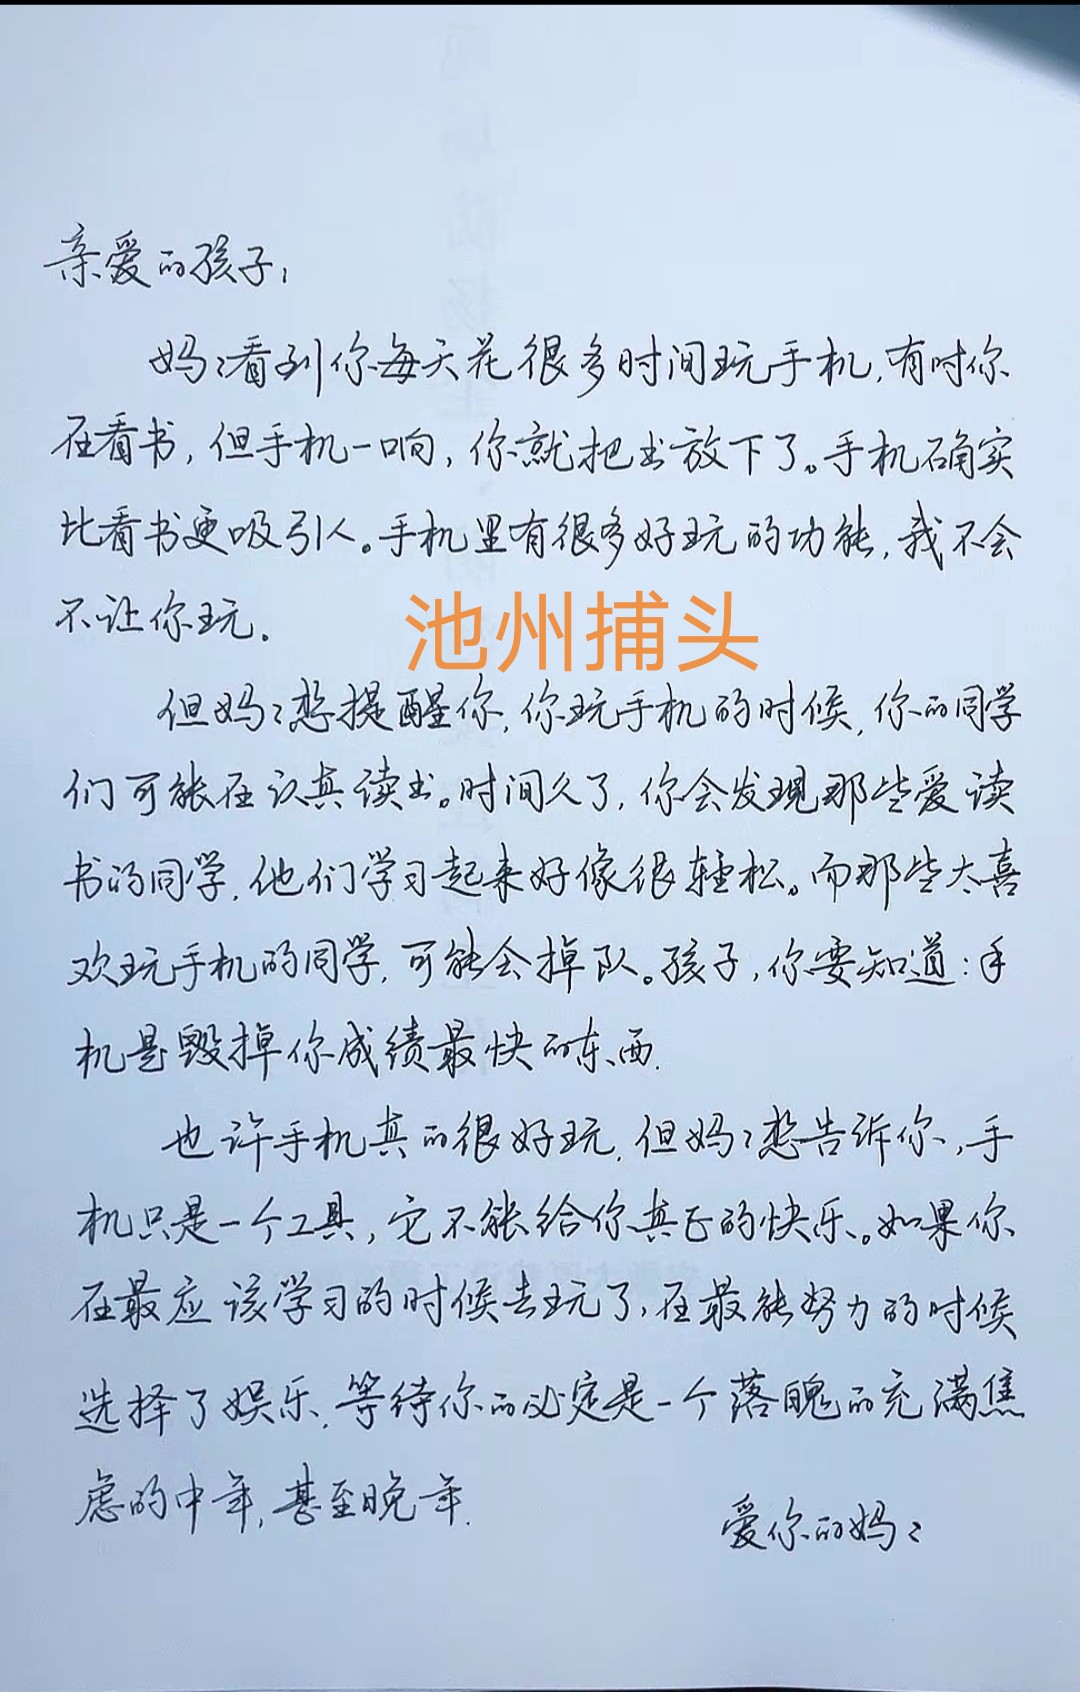 亲爱的孩子：
妈妈看到你每天花很多时间玩手机,有时你
在看书,但手机一响,你就把书放下了。手机确实
比看书更吸引人。手机里有很多好玩的功能,我不会
不让你玩.
池州捕头
但妈妈想提醒你,你玩手机的时候,你的同学
们可能在认真读书。时间久了,你会发现那些爱读
书的同学,他们学习起来好像很轻松。而那些太喜
欢玩手机的同学,可能会掉队。孩子,你要知道:手
机是毁掉你成绩最快的东西.
也许手机真的很好玩,但妈妈想告诉你,手
机只是一个工具,它不能给你真正的快乐。如果你
在最应该学习的时候去玩了,在最能努力的时候
选择了娱乐,等待你的必定是一个落魄的充满焦
虑的中年,甚至晚年.
爱你的妈妈